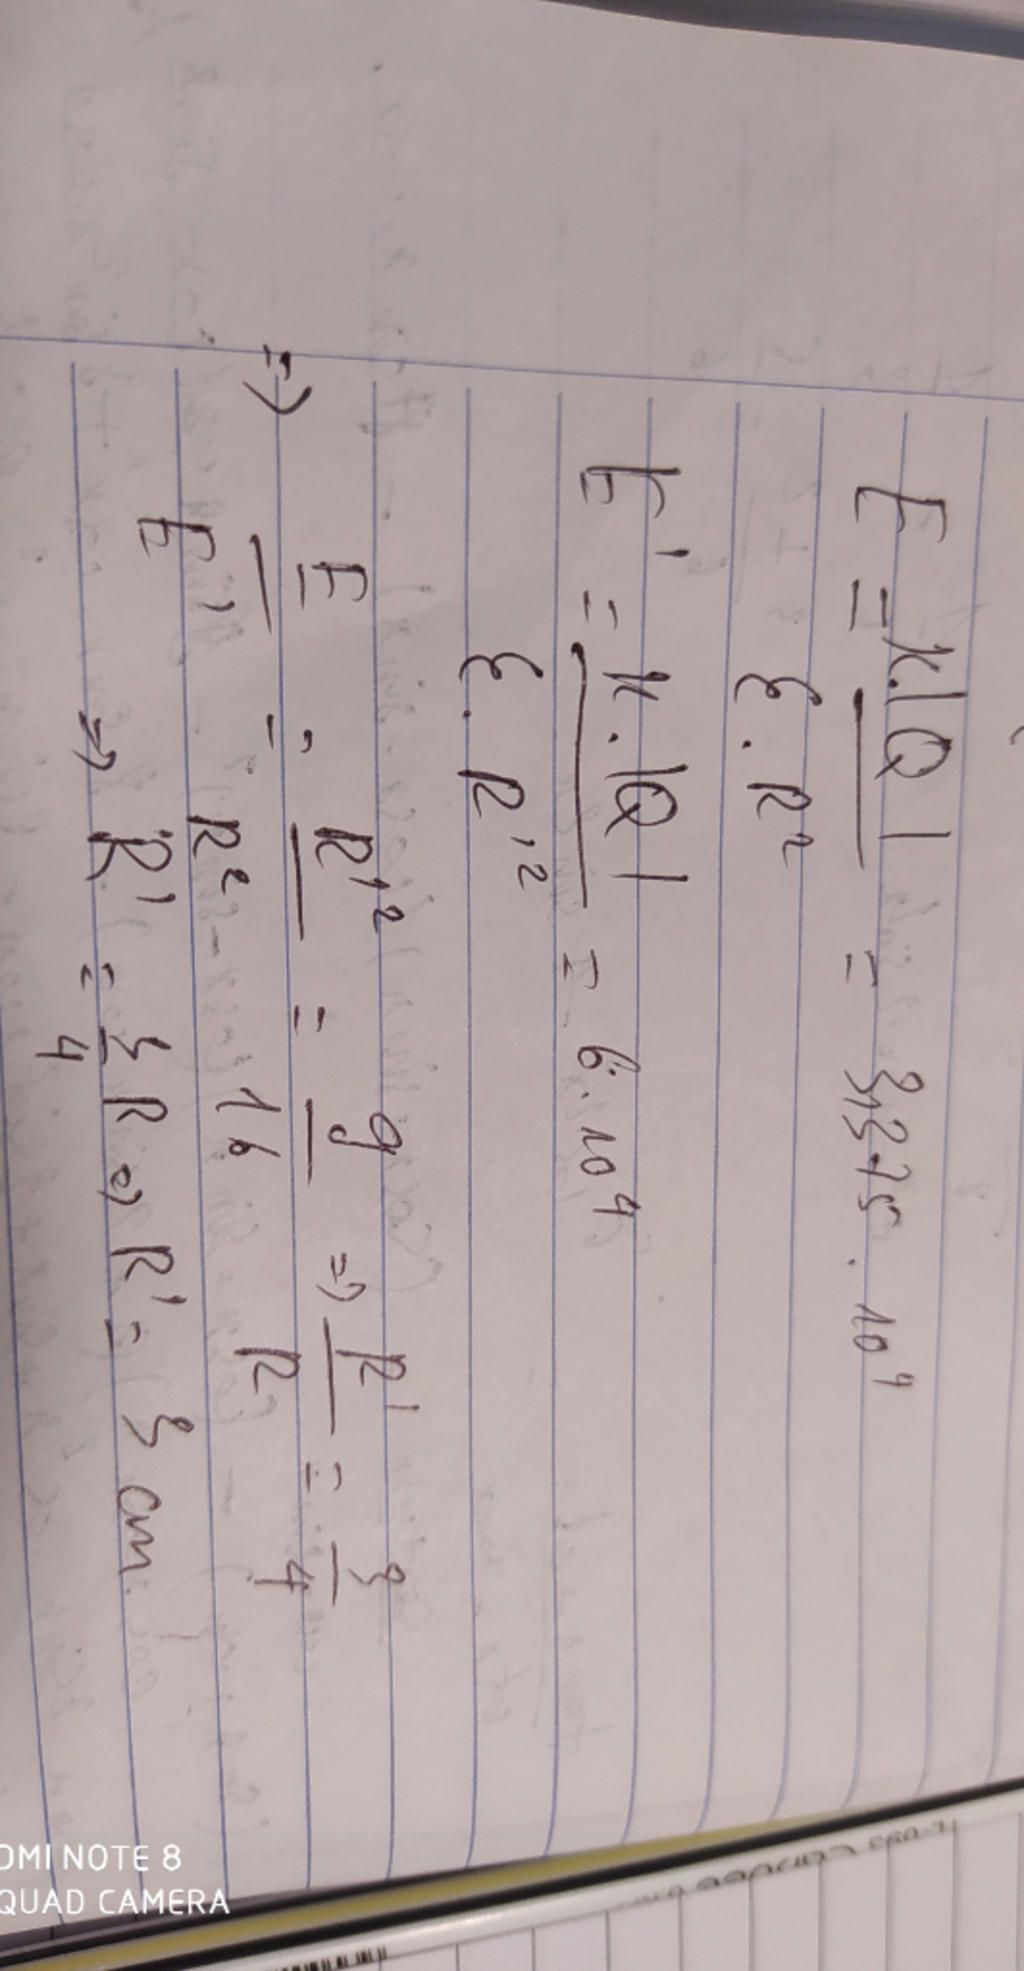 E = k.|Q| / ε.R² = 3,375.10⁴
E' = k.|Q| / ε.R'² = 6.10⁴
=> E / E' = R'² / R² = 9 / 16 => R' / R = 3 / 4
=> R' = 3 / 4 R => R' = 3 cm.
DMI NOTE 8
QUAD CAMERA